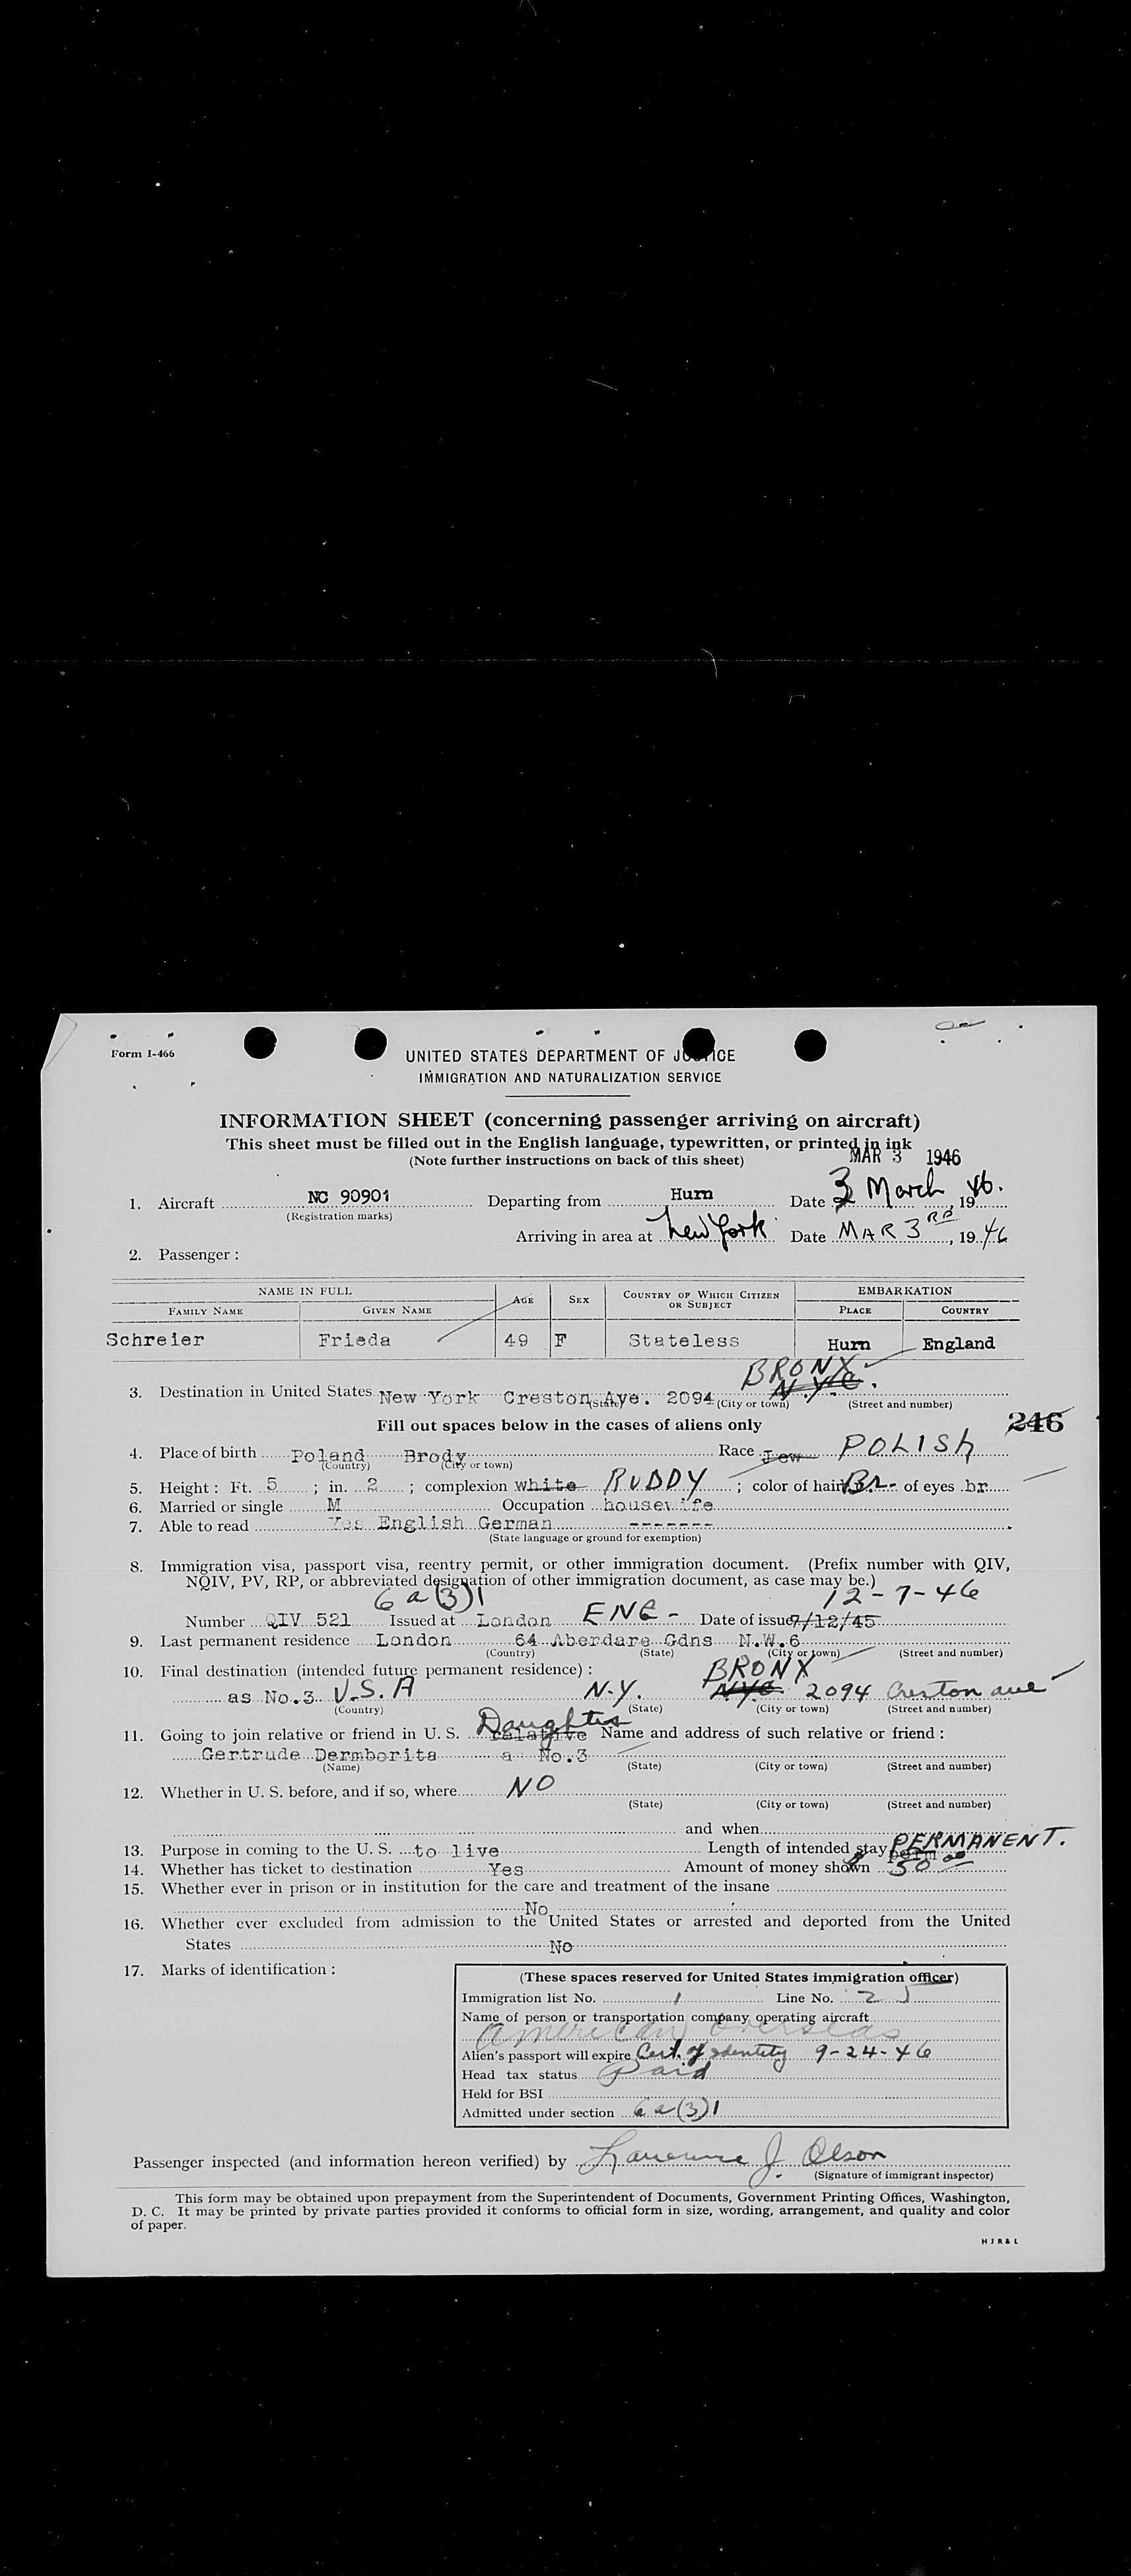 Form I-466
UNITED STATES DEPARTMENT OF JUSTICE
IMMIGRATION AND NATURALIZATION SERVICE
INFORMATION SHEET (concerning passenger arriving on aircraft)
This sheet must be filled out in the English language, typewritten, or printed in ink
(Note further instructions on back of this sheet)
MAR 3 1946
1. Aircraft NC 90901 Departing from Hurn Date 3 March, 1946.
(Registration marks)
Arriving in area at New York Date MAR 3RD, 1946
2. Passenger :
NAME IN FULL AGE SEX COUNTRY OF WHICH CITIZEN OR SUBJECT EMBARKATION
FAMILY NAME GIVEN NAME PLACE COUNTRY
Schreier Frieda 49 F Stateless Hurn England
BRONX
3. Destination in United States New York Creston Aye. 2094 N.Y.C.
(State) (City or town) (Street and number)
Fill out spaces below in the cases of aliens only
246
4. Place of birth Poland Brody Race Jew POLISH
(Country) (City or town)
5. Height : Ft. 5 ; in. 2 ; complexion white RUDDY ; color of hair Br- of eyes br.
6. Married or single M Occupation housewife
7. Able to read Yes English German -------
(State language or ground for exemption)
8. Immigration visa, passport visa, reentry permit, or other immigration document. (Prefix number with QIV,
NQIV, PV, RP, or abbreviated designation of other immigration document, as case may be.)
6a(3)1 12-7-46
Number QIV 521 Issued at London ENG- Date of issue 7/12/45
9. Last permanent residence London 64 Aberdare Gdns N.W.6
(Country) (State) (City or town) (Street and number)
10. Final destination (intended future permanent residence) : BRONX
as No.3 U.S.A N.Y. NYC 2094 Creston ave
(Country) (State) (City or town) (Street and number)
11. Going to join relative or friend in U. S. relative Daughter Name and address of such relative or friend :
Gertrude Dermborita a No.3
(Name) (State) (City or town) (Street and number)
12. Whether in U. S. before, and if so, where NO
(State) (City or town) (Street and number)
and when
13. Purpose in coming to the U. S. to live Length of intended stay perm PERMANENT.
14. Whether has ticket to destination Yes Amount of money shown 50 00
15. Whether ever in prison or in institution for the care and treatment of the insane
No
16. Whether ever excluded from admission to the United States or arrested and deported from the United
States No
17. Marks of identification :
(These spaces reserved for United States immigration officer)
Immigration list No. 1 Line No. 2
Name of person or transportation company operating aircraft
American Overseas
Alien's passport will expire Cert. of Identity 9-24-46
Head tax status Paid
Held for BSI
Admitted under section 6a(3)1
Passenger inspected (and information hereon verified) by Lawrence J. Olson
(Signature of immigrant inspector)
This form may be obtained upon prepayment from the Superintendent of Documents, Government Printing Offices, Washington,
D. C. It may be printed by private parties provided it conforms to official form in size, wording, arrangement, and quality and color
of paper.
H J R & L